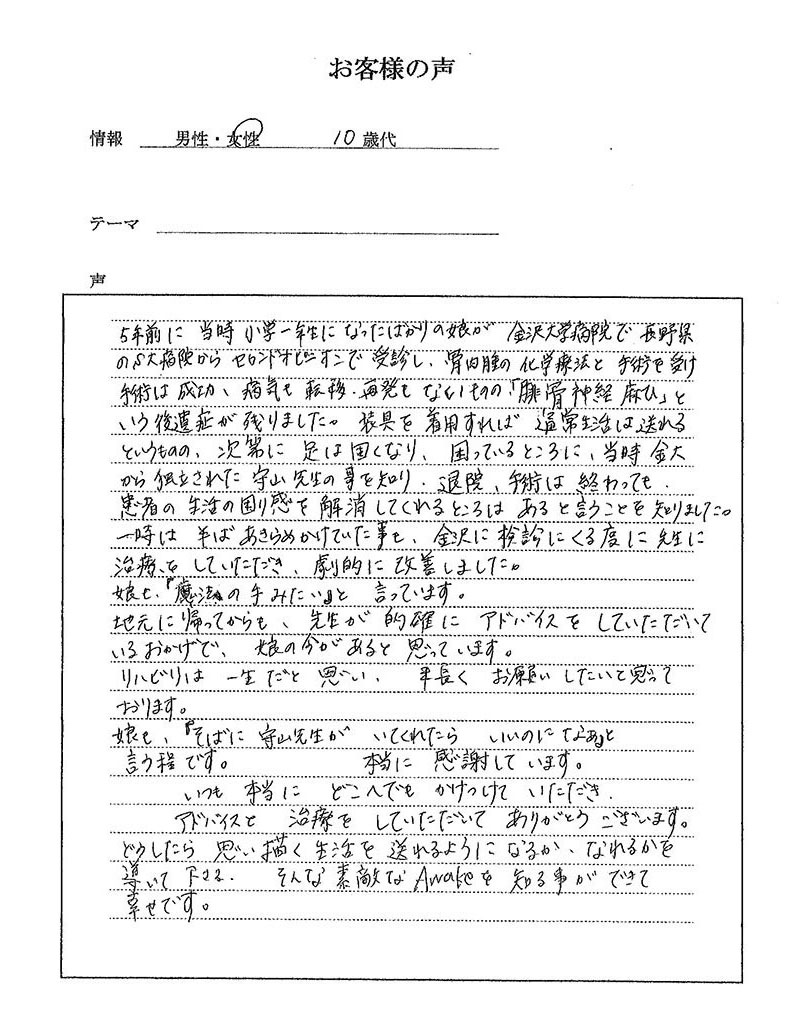 お客様の声
情報 男性・女性 10歳代
テーマ
声
5年前に 当時 小学一年生になったばかりの娘が 金沢大学病院で 長野県
のS大病院から セカンドオピニオンで 受診し、骨肉腫の 化学療法と 手術を受け
手術は 成功、病気も 転移・再発も ないものの「腓骨神経麻ひ」と
いう後遺症が 残りました。装具を 着用すれば 通常生活は送れる
というものの、次第に 足は固くなり、困っているところに、当時 金大
から独立された 守山先生の事を知り、退院、手術は 終わっても、
患者の 生活の困り感を 解消してくれるところは あると言うことを 知りました。
一時は 半ばあきらめかけていた事も、金沢に 検診にくる度に 先生に
治療を していただき、劇的に 改善しました。
娘も、『魔法の手みたい』と 言っています。
地元に 帰ってからも、先生が 的確に アドバイスを していただいて
いるおかげで、娘の今があると 思っています。
リハビリは 一生だと 思い、末長く お願いしたいと思って
おります。
娘も、『そばに 守山先生が いてくれたら いいのになあ』と
言う程です。 本当に 感謝しています。
いつも 本当に どこへでも かけつけて いただき、
アドバイスと 治療を していただいて ありがとう ございます。
どうしたら 思い描く生活を 送れるようになるか、なれるかを
導いて 下さる、そんな素敵なAwakeを 知る事が できて
幸せです。